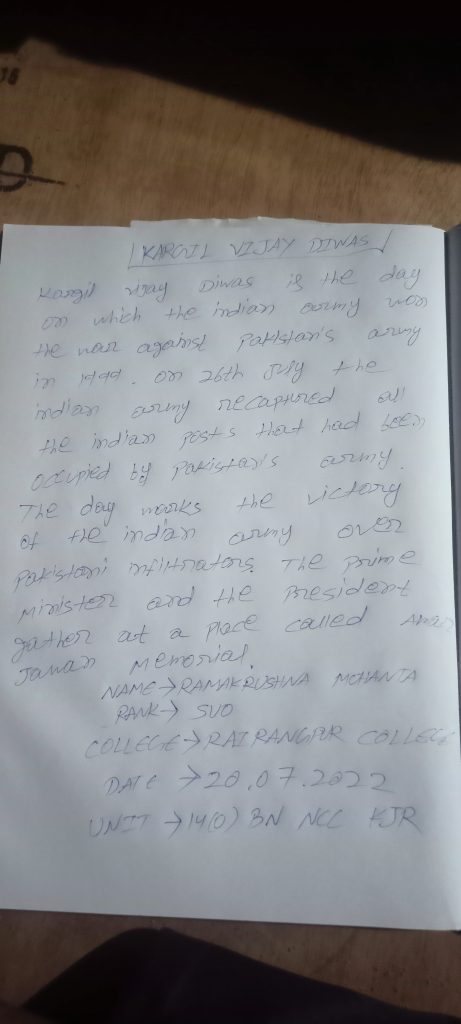 36
KARGIL VIJAY DIWAS
Kargil vijay Diwas is the day
on which the indian army won
the war against Pakistan's army
in 1999. on 26th July the
indian army recaptured all
the indian posts that had been
occupied by Pakistan's army.
The day marks the victory
of the indian army over
Pakistani infiltrators. The prime
Minister and the President
gather at a place called Amar
Jawan Memorial.
NAME → RAMAKRUSHNA MOHANTA
RANK → SUO
COLLEGE → RAIRANGPUR COLLEGE
DATE → 20.07.2022
UNIT → 14(O) BN NCC KJR